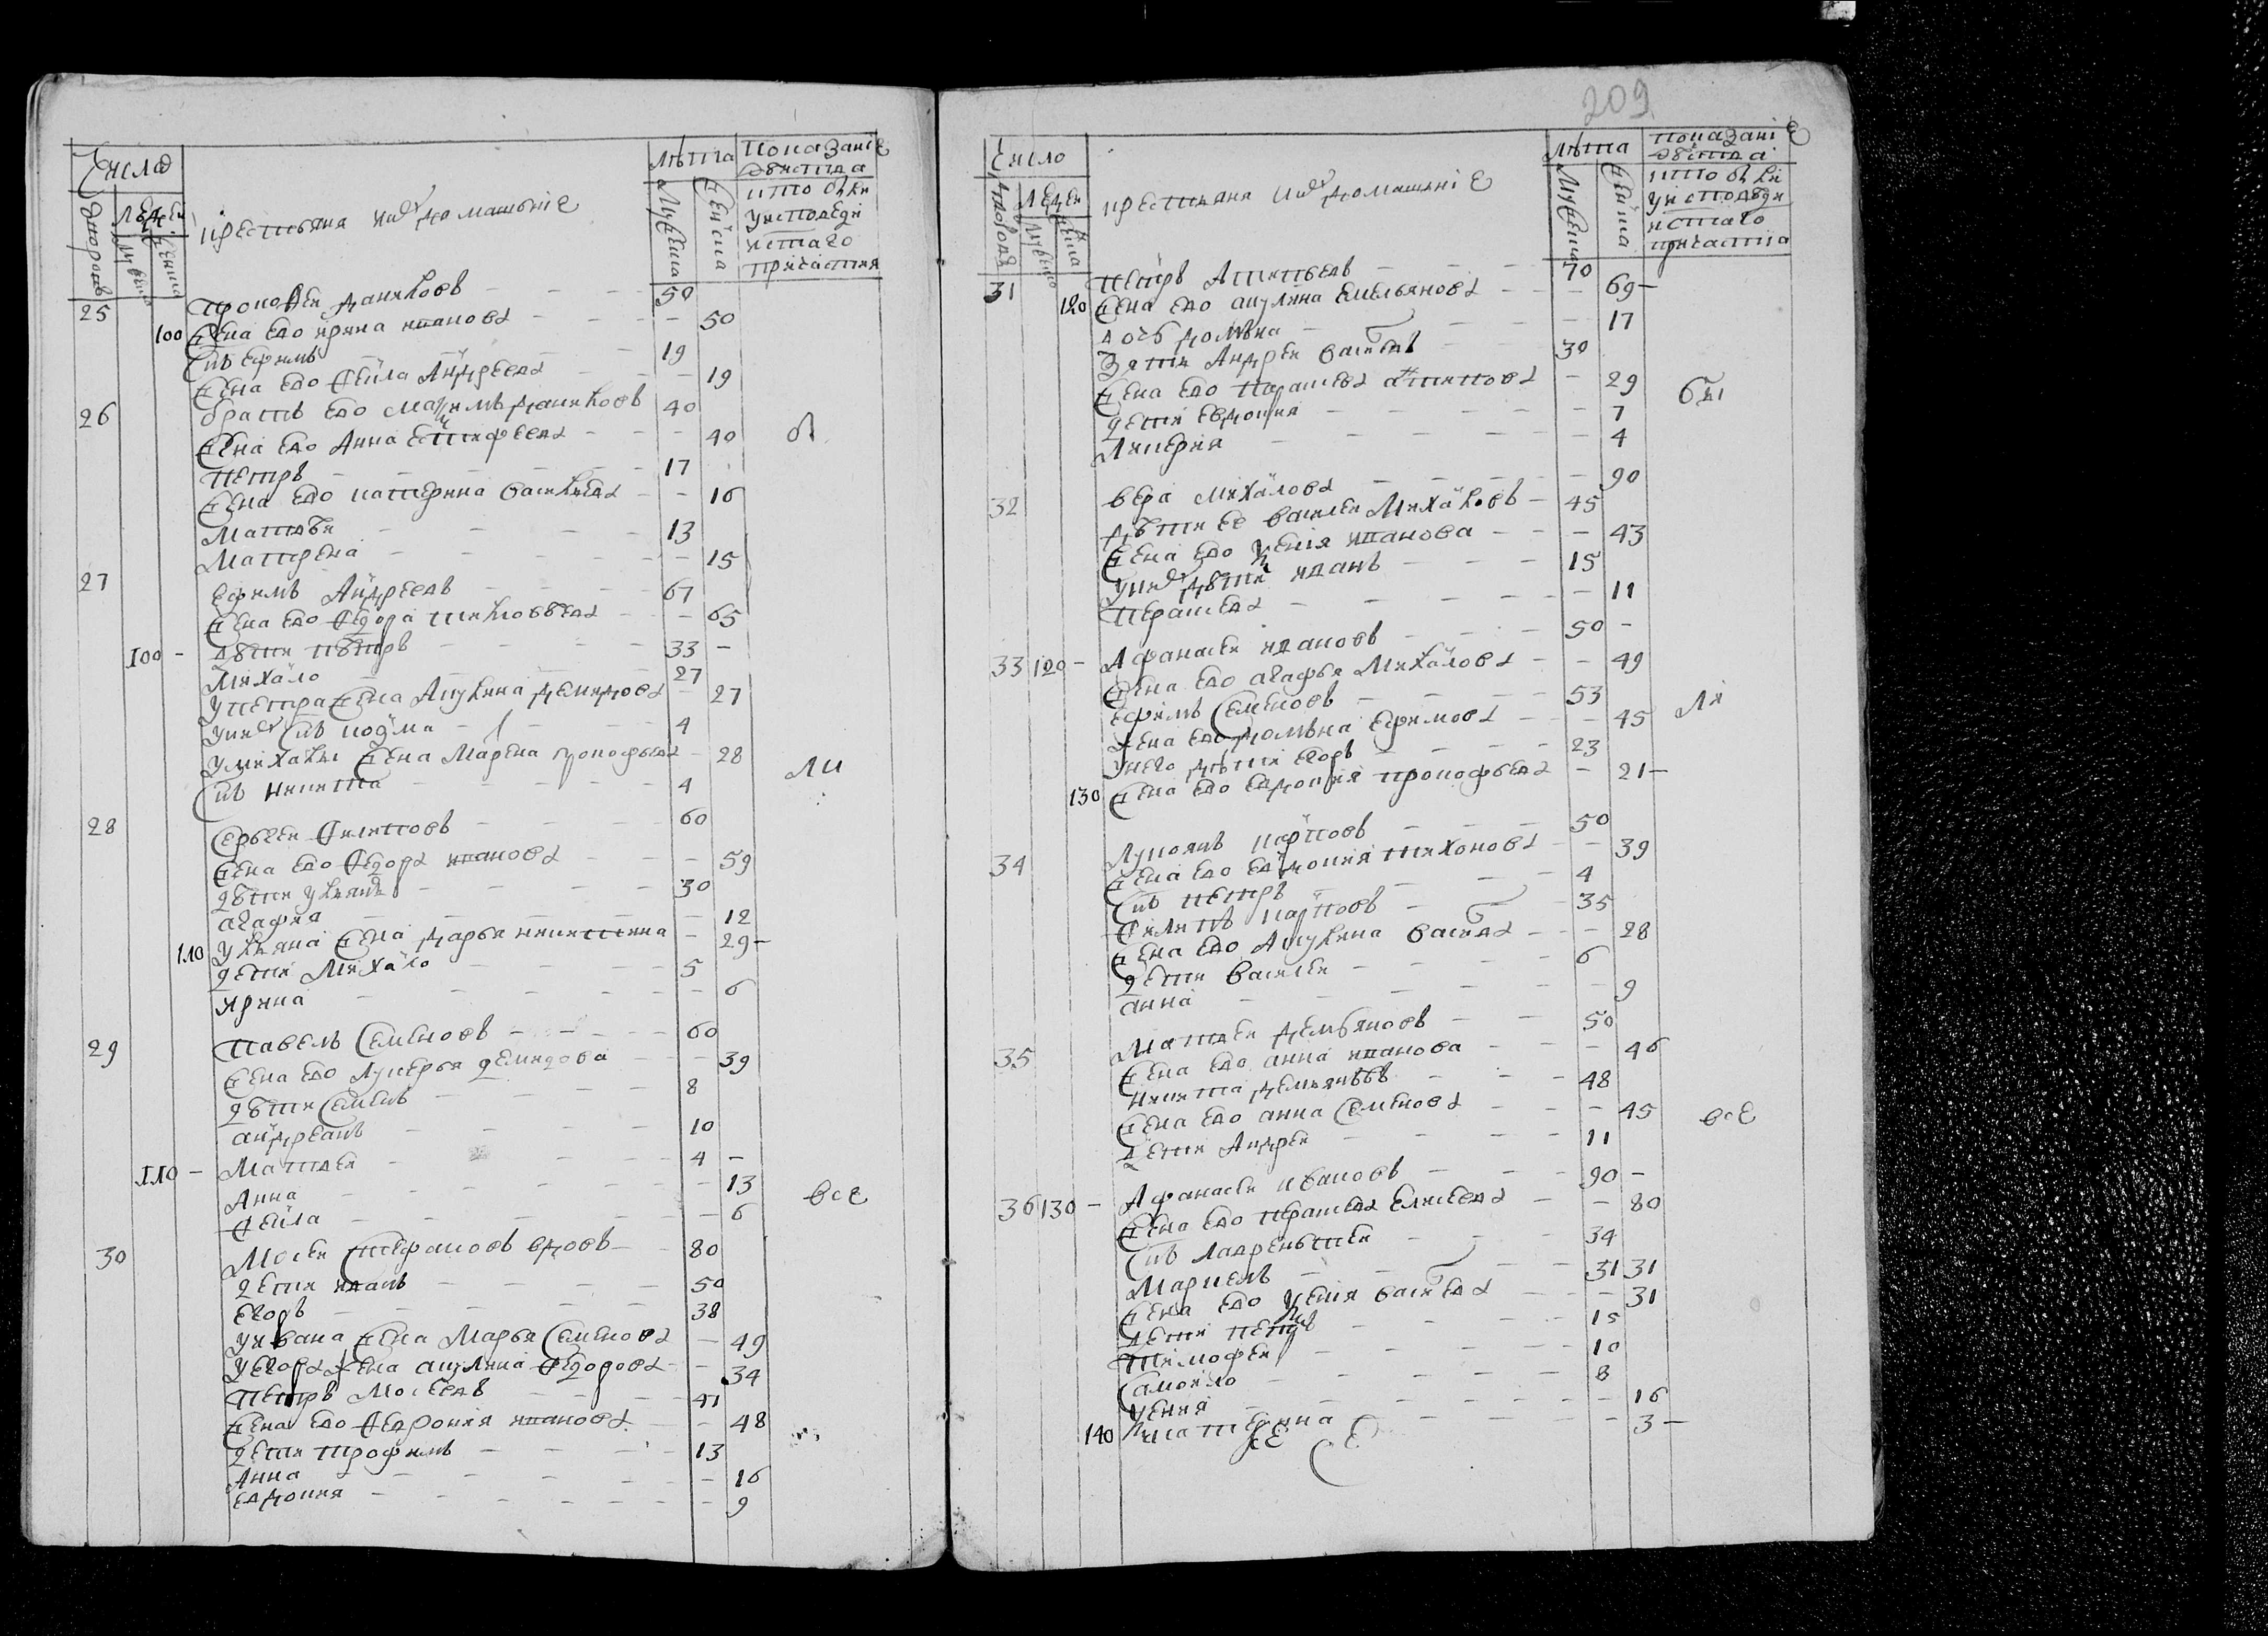 Числа
Дворовъ
Людей
Мужеска
Женска
крестьяне ихъ домашние
Лѣта
Мужеска
Женска
показание
действа
кто были
у исповеди
и стаго
причастия
25 Прокофей Даниловъ 50
100 Жена его Ирина иванова 50
Снъ Ефимъ 19
Жена его Фекла Андреева 19
26 братъ его Максимъ Даниловъ 40
Жена его Анна Естифеева 40
бы
Петръ 17
Жена его катерина Василиева 16
Матвѣй 13
Матрена 15
27 Ефимъ Андреевъ 67
Жена его Федора 65
100 - дѣти Петръ 33 -
Михайло 27
У петра Жена Акулина Демидова 27
У них Снъ козма 4
У михайлы Жена Марена прокофьева 28
Снъ никита 4
ли
28 Сергей Филиповъ 60
Жена его Федора иванова 59
дѣти Ульянъ 30
агафия 12
110 Ульяна Жена дарья никитина 29-
дети Михайло 5
ирина 6
29 Павелъ Семеновъ 60
Жена его Лукерья Демидова 39
дѣти Семенъ 8
андреанъ 10
110 - Матвей 4 -
Анна 13
Фекла 6
все
30 Мосей Стефановъ вдовъ 80
дети иванъ 50
Егоръ 38
У ивана Жена Марья Семенова 49
У Егора жена акулина Федорова 34
Петръ Мосеевъ 41
Жена его Феврония иванова 48
дети трофимъ 13
Анна 16
евдокия 9
209
Число
Дворовъ
Людей
Мужеска
Женска
крестьяне и их домашние
Лѣта
Мужеска
Женска
показание
действа
кто были
у исповеди
и стаго
причастия
31 Петръ Антипьевъ 70
120 Жена его акулина Емельянова 69-
дочь домна 17
Зять Андрей Васильевъ 30
Жена его Парасева антипова 29
дети евдокия 7
бы
Лукерия 4
32 вера Михайлова 90
дѣти ее василей Михайловъ 45
Жена его Ксения иванова 43
У них дѣти иванъ 15
Перасева 11
33 120 - Афанасей ивановъ 50 -
Жена его агафья Михайлова 49
Ефимъ Семеновъ 53
жена его домна Ефимова 45
ли
У него дѣти егоръ 23
130 Жена его евдокия прокофьева 21-
34 Лукоянъ карповъ 50
Жена его евдокия тихонова 39
Снъ петръ 4
Филипъ карповъ 35
Жена его Акулина Васильева 28
дети василей 6
анна 9
35 Матвей демьяновъ 50
Жена его анна иванова 46
никита демьяновъ 48
Жена его анна Семенова 45
дети Андрей 11
все
36 130 - Афанасей ивановъ 90 -
Жена его Перасева Елисеева 80
Снъ лаврентей 34
Маркелъ 31 31
Жена его Ксения васильева 31
дети петръ 15
Тимофей 10
Самойло 8
Ксения 16
140 катерина 3-